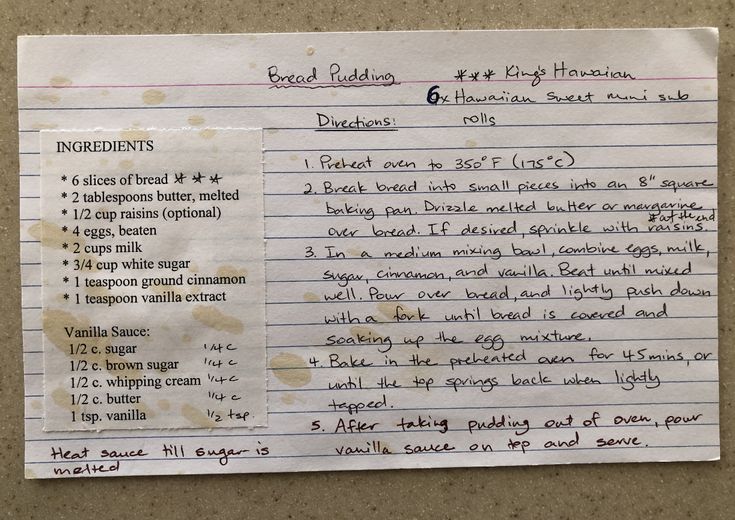 Bread Pudding
*** King's Hawaiian
6x Hawaiian sweet mini sub
rolls
INGREDIENTS
* 6 slices of bread ***
* 2 tablespoons butter, melted
* 1/2 cup raisins (optional)
* 4 eggs, beaten
* 2 cups milk
* 3/4 cup white sugar
* 1 teaspoon ground cinnamon
* 1 teaspoon vanilla extract
Vanilla Sauce:
1/2 c. sugar 1/4 c
1/2 c. brown sugar 1/4 c
1/2 c. whipping cream 1/4 c
1/2 c. butter 1/4 c
1 tsp. vanilla 1/2 tsp.
Heat sauce till sugar is
melted
Directions:
1. Preheat oven to 350°F (175°C)
2. Break bread into small pieces into an 8" square
baking pan. Drizzle melted butter or margarine
* at the end
over bread. If desired, sprinkle with raisins.
3. In a medium mixing bowl, combine eggs, milk,
sugar, cinnamon, and vanilla. Beat until mixed
well. Pour over bread, and lightly push down
with a fork until bread is covered and
soaking up the egg mixture.
4. Bake in the preheated oven for 45 mins, or
until the top springs back when lightly
tapped.
5. After taking pudding out of oven, pour
vanilla sauce on top and serve.